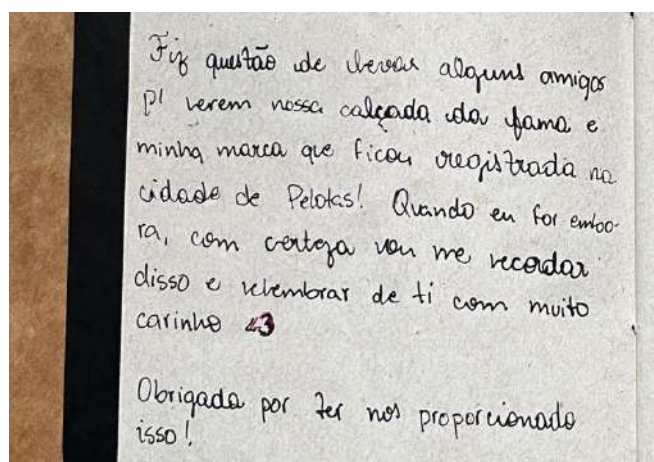 Fiz questão de levar alguns amigos
p/ verem nossa calçada da fama e
minha marca que ficou registrada na
cidade de Pelotas! Quando eu for embo-
ra, com certeza vou me recordar
disso e relembrar de ti com muito
carinho <3
Obrigada por ter nos proporcionado
isso!